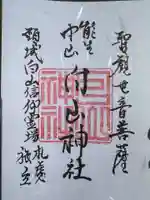 聖観世音菩薩
能生
中山
白山神社
頸城白山信仰霊場
札